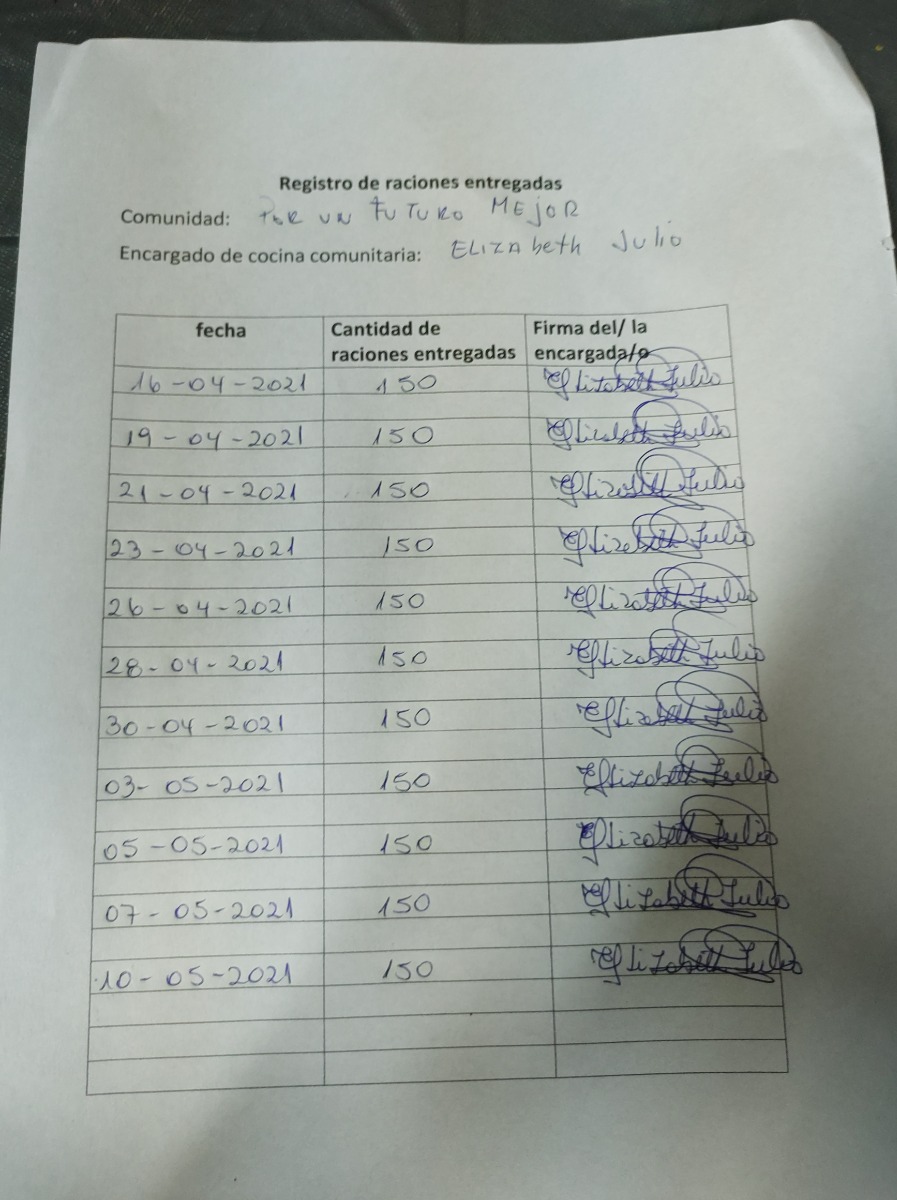 Registro de raciones entregadas
Comunidad: POR UN FUTURO MEJOR
Encargado de cocina comunitaria: ELIZAbeth Julio
fecha Cantidad de raciones entregadas Firma del/ la encargada/o
16-04-2021 150 Elizabeth Julio
19-04-2021 150 Elizabeth Julio
21-04-2021 150 Elizabeth Julio
23-04-2021 150 Elizabeth Julio
26-04-2021 150 Elizabeth Julio
28-04-2021 150 Elizabeth Julio
30-04-2021 150 Elizabeth Julio
03-05-2021 150 Elizabeth Julio
05-05-2021 150 Elizabeth Julio
07-05-2021 150 Elizabeth Julio
10-05-2021 150 Elizabeth Julio